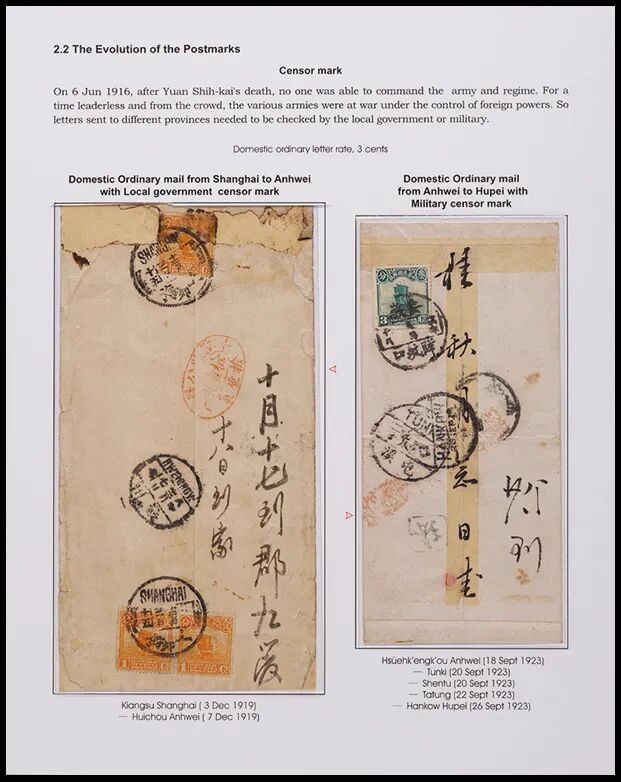 2.2 The Evolution of the Postmarks
Censor mark
On 6 Jun 1916, after Yuan Shih-kai's death, no one was able to command the army and regime. For a
time leaderless and from the crowd, the various armies were at war under the control of foreign powers. So
letters sent to different provinces needed to be checked by the local government or military.
Domestic ordinary letter rate, 3 cents
Domestic Ordinary mail from Shanghai to Anhwei
with Local government censor mark
SHANGHAI
十月十七到郡九
十八日到
SHANGHAI
1
1
Kiangsu Shanghai ( 3 Dec 1919)
— Huichou Anhwei ( 7 Dec 1919)
Domestic Ordinary mail
from Anhwei to Hupei with
Military censor mark
3
桂秋月
日
TUNKI
HANKOW
到
Hsüehk'engk'ou Anhwei (18 Sept 1923)
— Tunki (20 Sept 1923)
— Shentu (20 Sept 1923)
— Tatung (22 Sept 1923)
— Hankow Hupei (26 Sept 1923)